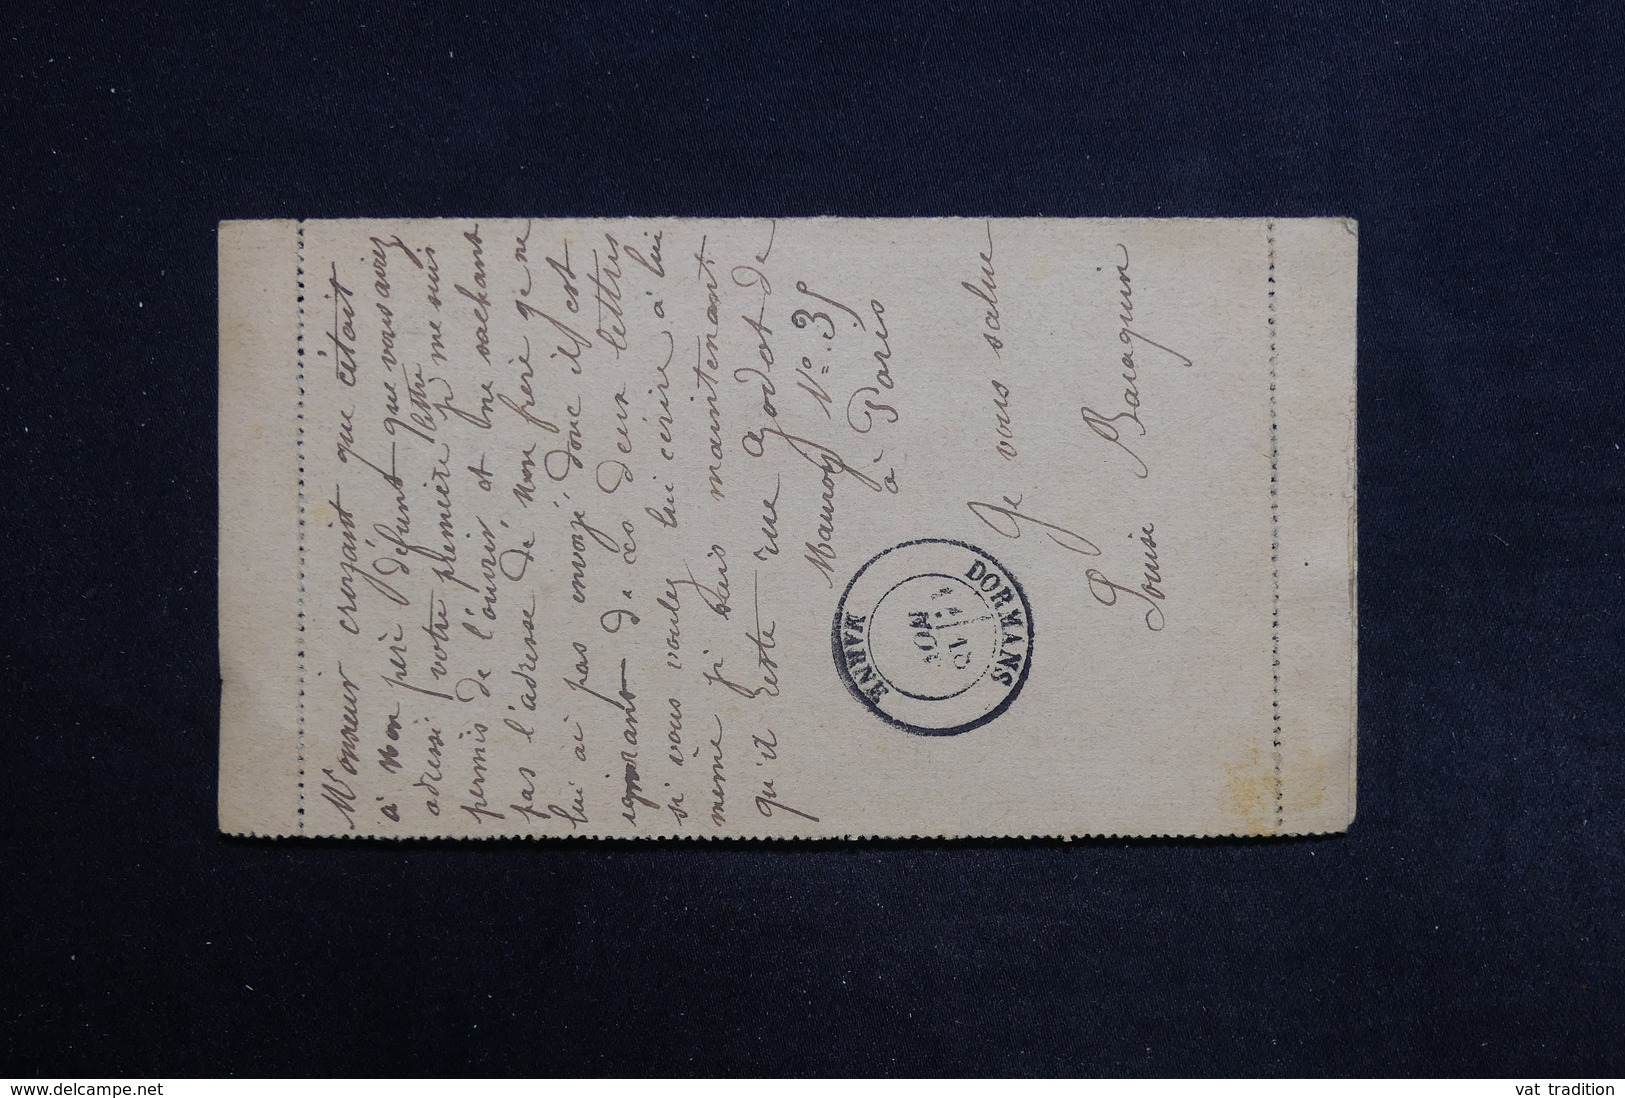 Monsieur croyant que c'étoit
à mon peri défunt que vous aviez
adressi votre premiere lettre j' me suis
permis de l'ouvrir et ne sachant
pas l'adresse de mon frère je ne
lui ai pas envoyé donc il est
ignorant de ces deux lettres
si vous voulez lui ecrire à lui
même je sais maintenant
qu'il reste rue Godot de
Mauroy N° 35
à Paris
Je vous salue
Louise Baraquin
DORMANS
MARNE
NOV
www.delcampe.net
vat tradition